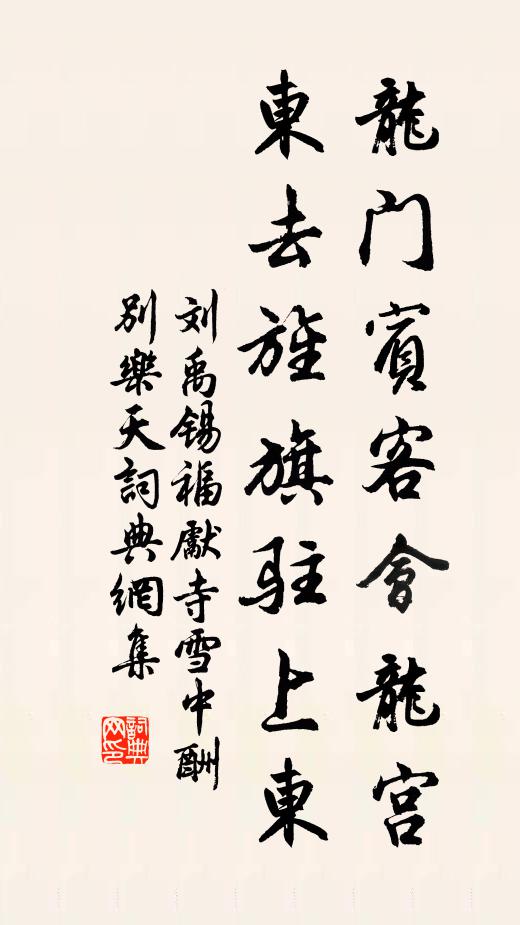 龍门賓客會龍宫
東去旌旗駐上東
刘禹锡福獻寺雪中酬
别樂天詞典網集
詞典网印